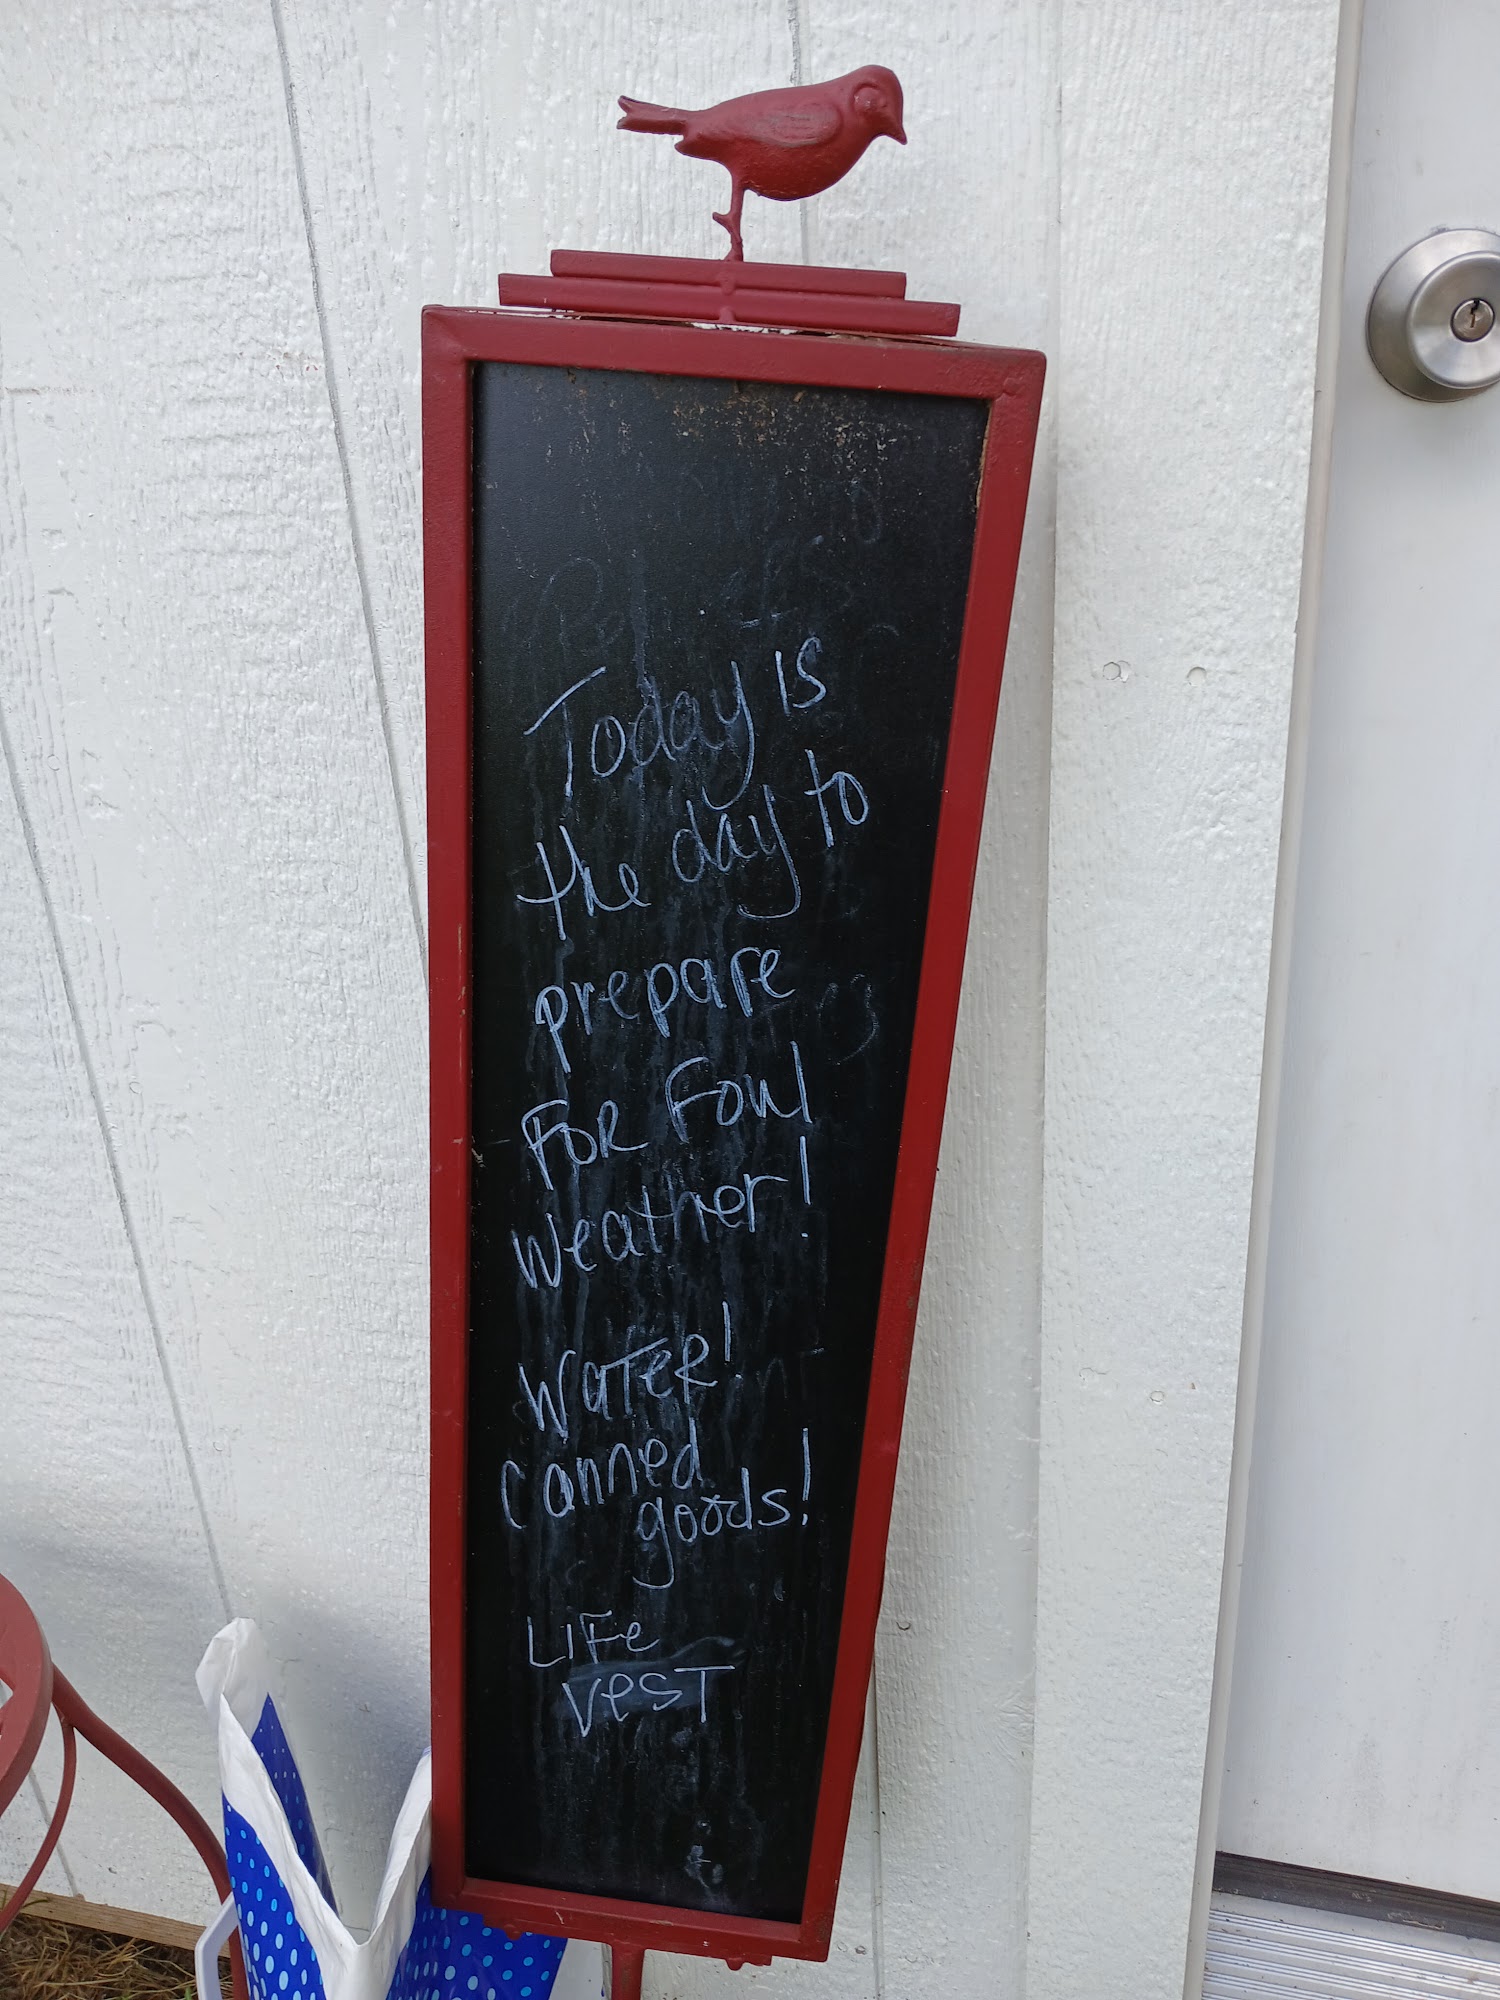 Today is
the day to
prepare
FOR FOUL
weather!
WATER!
canned
goods!
LIFe
VesT